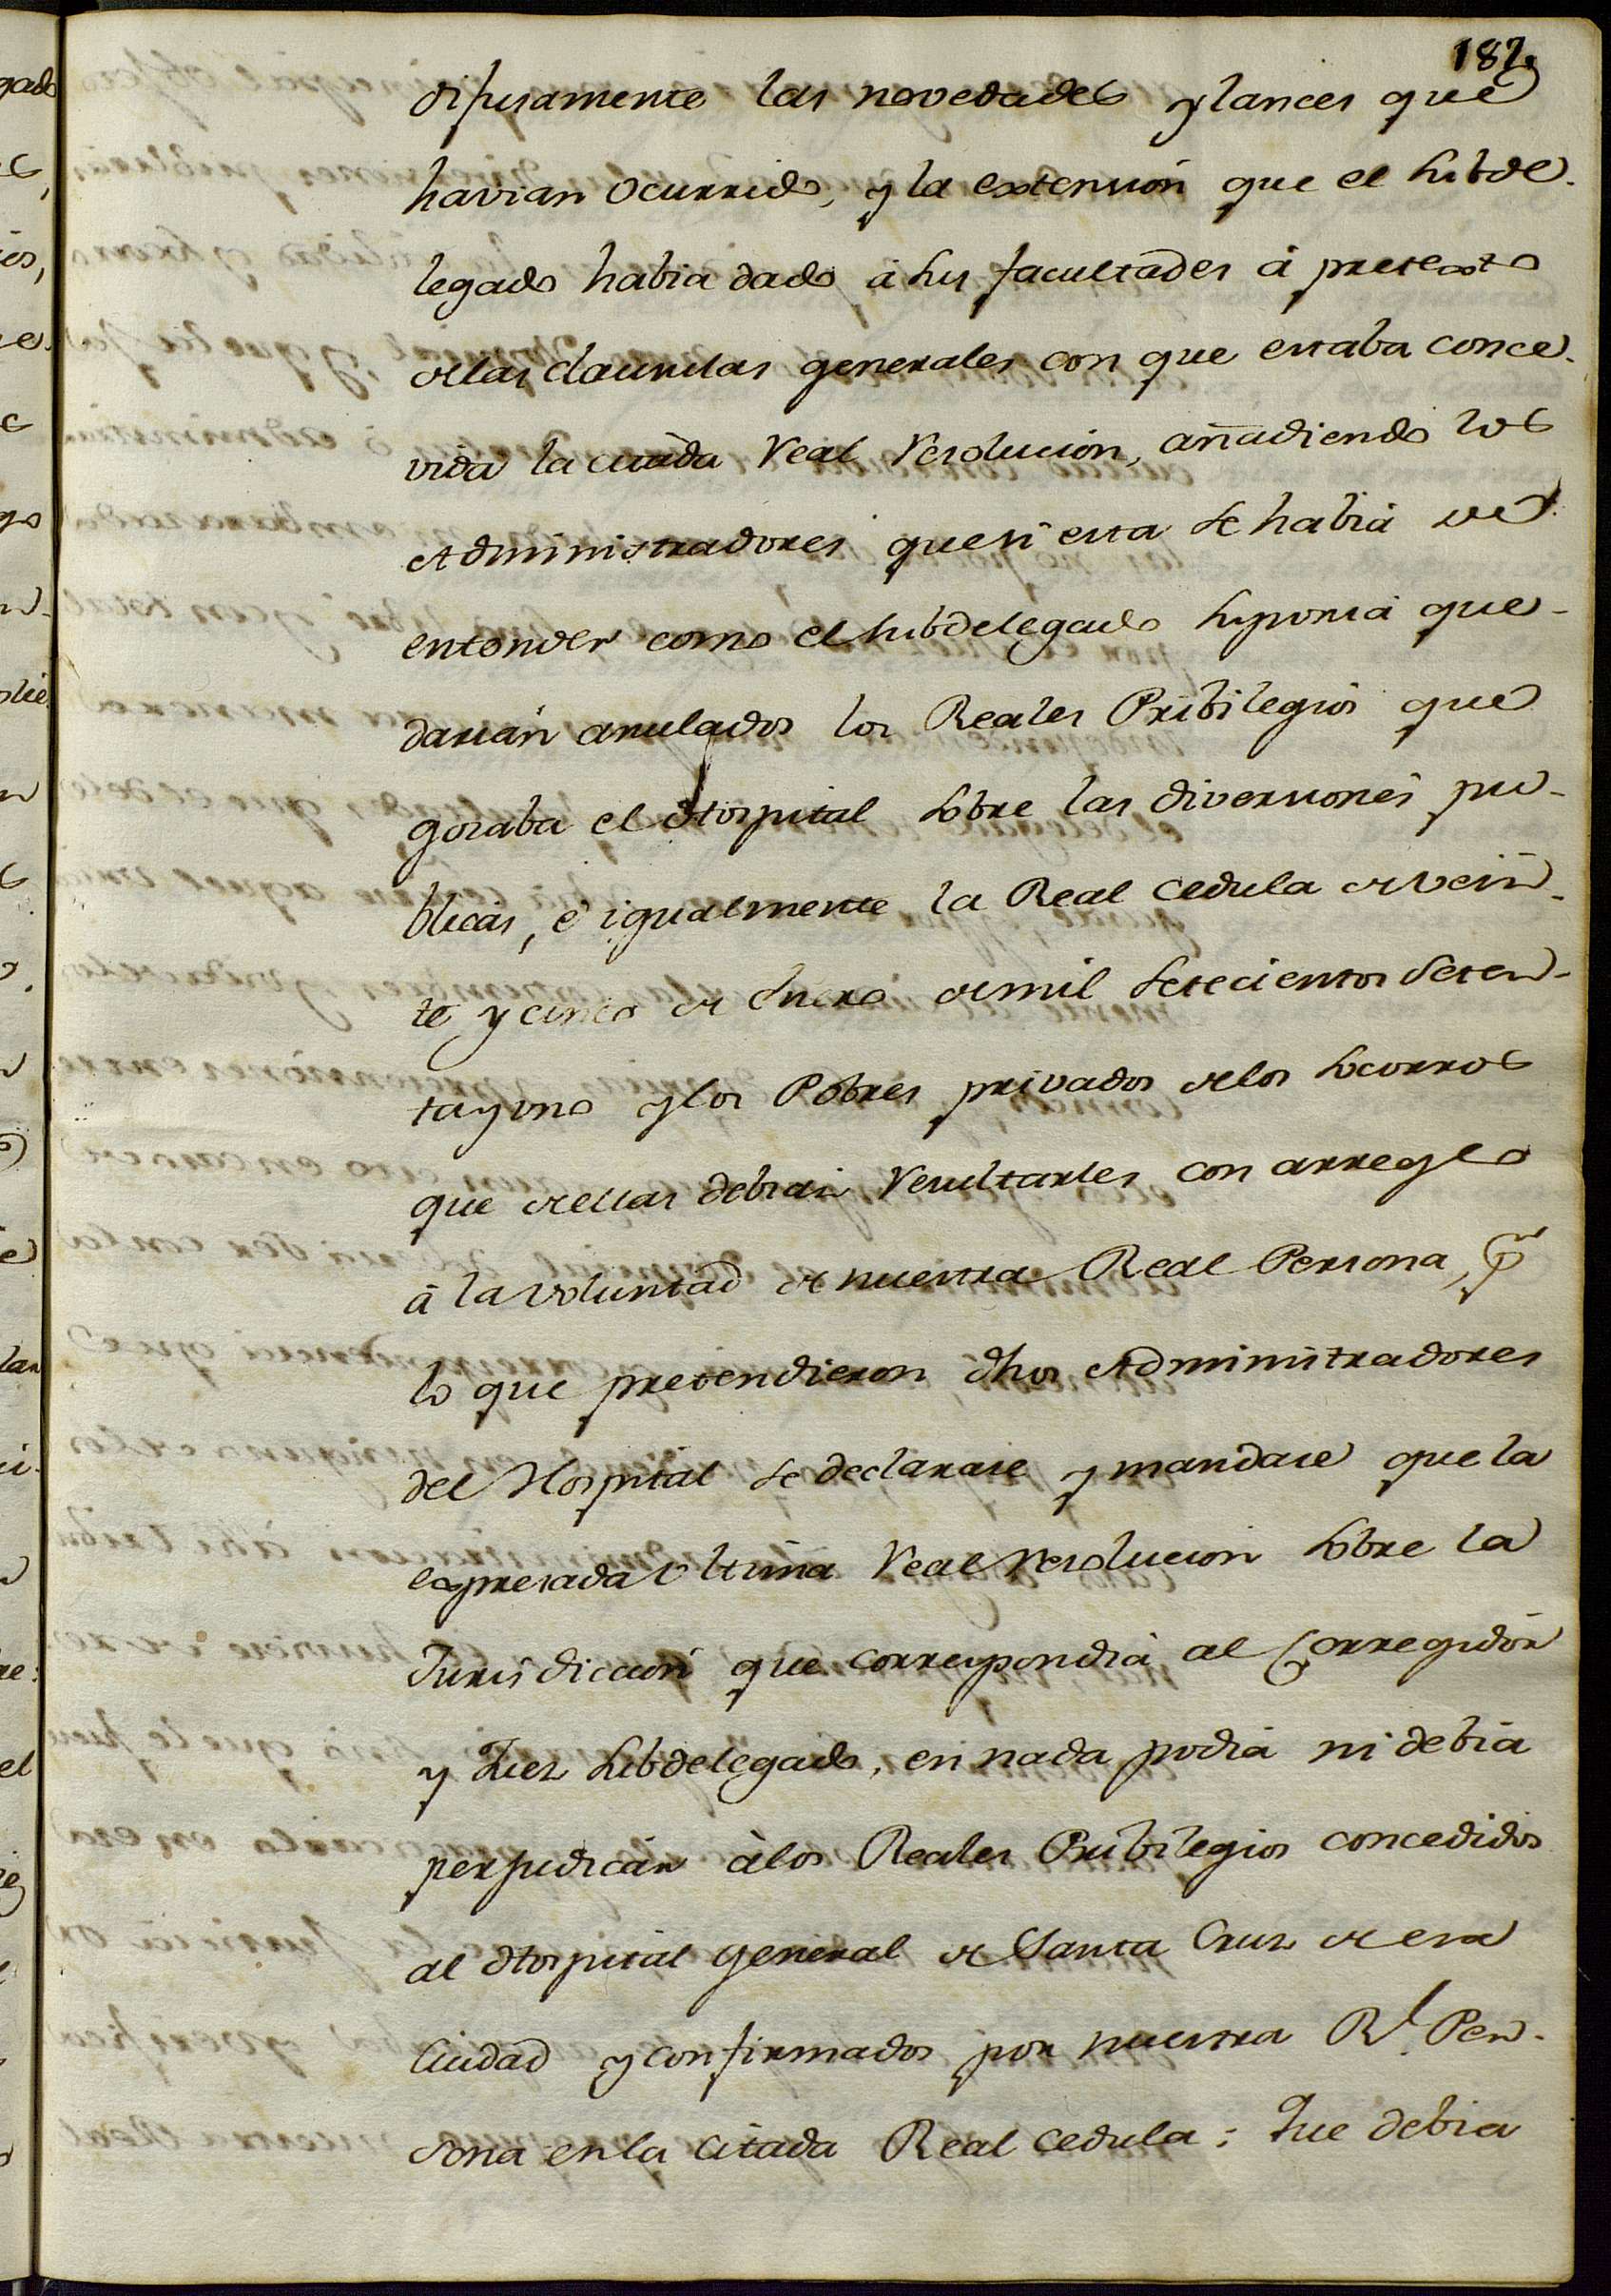 187.
difusamente las novedades y lances que
havian ocurrido, y la extension que el Subde-
legado habia dado á sus facultades á pretexto
de las clausulas generales con que estaba conce-
vida la citada Real Resolucion, añadiendo los
Administradores que si esta se habia de
entender como el Subdelegado suponia que-
darian anulados los Reales Pribilegios que
gosaba el Hospital sobre las diversiones pu-
blicas, é igualmente la Real Cedula de vein-
te y cinco de Enero de mil setecientos seten-
ta y uno y los Pobres privados de los socorros
que de ellas debian Resultarles con arreglo
á la voluntad de nuestra Real Persona, pr
lo que pretendieron dhos Administradores
del Hospital se declarase y mandase que la
expresada ultima Real Resolucion sobre la
Jurisdiccion que correspondia al Corregidor
y Juez Subdelegado, en nada podia ni debia
perjudicar á los Reales Pribilegios concedidos
al Hospital general de Santa Cruz de esa
Ciudad y confirmados por nuestra Rl. Per-
sona en la citada Real Cedula: Que debia